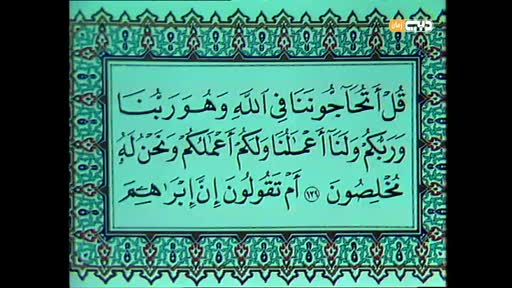 دبي زمان
قُلْ أَتُحَآجُّونَنَا فِى ٱللَّهِ وَهُوَ رَبُّنَا
وَرَبُّكُمْ وَلَنَآ أَعْمَٰلُنَا وَلَكُمْ أَعْمَٰلُكُمْ وَنَحْنُ لَهُۥ
مُخْلِصُونَ ١٣٩ أَمْ تَقُولُونَ إِنَّ إِبْرَٰهِـۧمَ